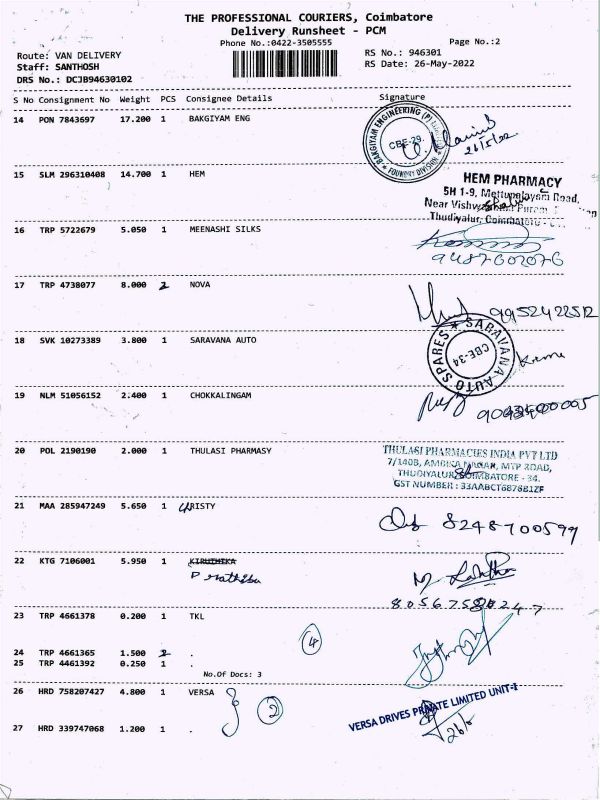 THE PROFESSIONAL COURIERS, Coimbatore
Delivery Runsheet - PCM
Phone No.:0422-3505555
Page No.:2
Route: VAN DELIVERY
RS No.: 946301
Staff: SANTHOSH
RS Date: 26-May-2022
DRS No.: DCJB94630102
S No Consignment No Weight PCS Consignee Details Signature
14 PON 7843697 17.200 1 BAKGIYAM ENG
BAKGIYAM ENGINEERING (P)
CBE-29.
FOUNDRY DIVISION
26/5/22
15 SLM 296310408 14.700 1 HEM
HEM PHARMACY
5H 1-9, Mettupalayam Road,
Near
Thudiyalur, Coimbatore
16 TRP 5722679 5.050 1 MEENASHI SILKS
9487602076
17 TRP 4738077 8.000 2 NOVA
9952422512
18 SVK 10273389 3.800 1 SARAVANA AUTO
SARAVANA AUTO SPARES
CBE-34
19 NLM 51056152 2.400 1 CHOKKALINGAM
20 POL 2190190 2.000 1 THULASI PHARMASY
THULASI PHARMACIES INDIA PVT LTD
7/140B, AMBIKA NAGAR, MTP ROAD,
THUDIYALUR, COIMBATORE - 34.
GST NUMBER : 33AABCT6878B1ZF
21 MAA 285947249 5.650 1 CHRISTY
8248700599
22 KTG 7106001 5.950 1 KIRUTHIKA
23 TRP 4661378 0.200 1 TKL
4
24 TRP 4661365 1.500 2 .
25 TRP 4461392 0.250 1 .
No.Of Docs: 3
26 HRD 758207427 4.800 1 VERSA
2
VERSA DRIVES PRIVATE LIMITED UNIT-I
26/5
27 HRD 339747068 1.200 1 .